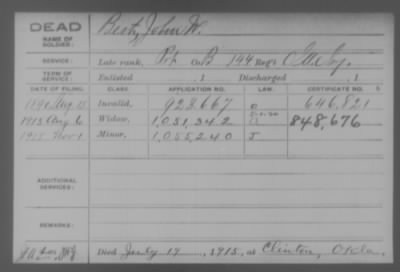 DEAD
NAME OF SOLDIER: Best, John W.
SERVICE: Late rank, Pvt Co. B 144 Reg't O
TERM OF SERVICE: Enlisted , 1 Discharged , 1
DATE OF FILING. CLASS. APPLICATION NO. LAW. CERTIFICATE NO. S
1890 Aug 15 Invalid, 928667 646,821
1915 Aug 6 Widow, 1,051,342 848,676
1915 Nov 1 Minor, 1,055,240 J
ADDITIONAL SERVICES:
REMARKS:
Died July 19, 1915, at Clinton, Okla.